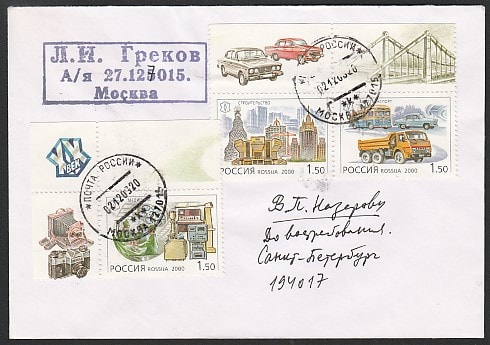 Л.И. Греков
А/я 27.127015.
Москва
ПОЧТА РОССИИ
МОСКВА 127015
СТРОИТЕЛЬСТВО
РОССИЯ ROSSIJA 2000 1.50
РОССИЯ ROSSIJA 2000 1.50
XX ВЕК
*ПОЧТА РОССИИ*
МОСКВА 127015
РОССИЯ ROSSIJA 2000 1.50
В.П. Назарову
До востребования.
Санкт-Петербург
194017